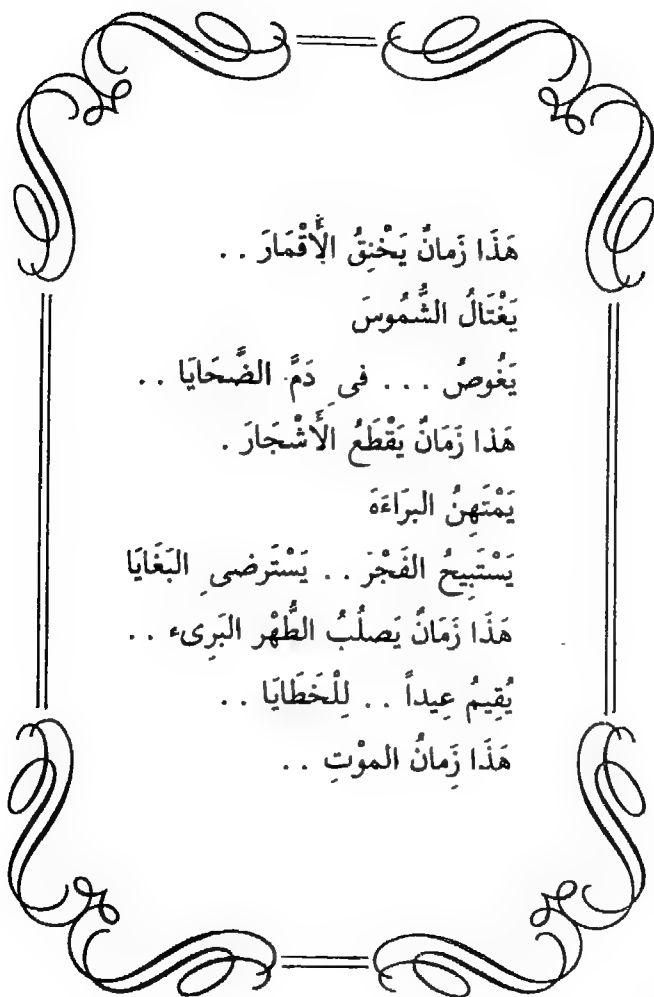 هَذَا زَمانٌ يَخْنِقُ الأَقْمَارَ . .
يَغْتَالُ الشُّمُوسَ
يَغُوصُ . . . فى ِ دَمِّ الضَّحَايَا . .
هَذا زَمَانٌ يَقْطَعُ الأَشْجَارَ .
يَمْتَهِنُ البرَاءَةَ
يَسْتَبِيحُ الفَجْرَ . . يَسْتَرضى ِ البَغَايَا
هَذَا زَمَانٌ يَصلُبُ الطُّهْر البَرِىء . .
يُقِيمُ عِيداً . . لِلْخَطَايَا . .
هَذَا زَِمانُ الموْتِ . .